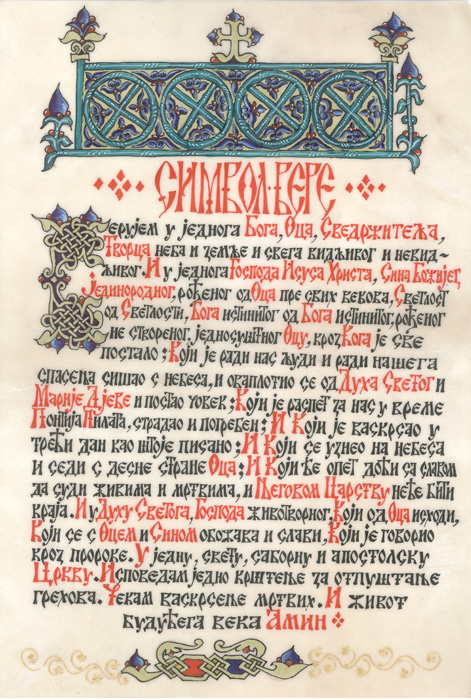 СИМВОЛ ВЕРЕ
Верујем у једнога Бога, Оца, Сведржитеља,
Творца неба и земље и свега видљивог и невид-
љивог. И у једнога Господа Исуса Христа, Сина Божијег,
Јединородног, рођеног од Оца пре свих векова, Светлост
од Светлости, Бога истинитог од Бога истинитог, рођеног
не створеног, једносуштног Оцу, кроз Кога је све
постало; Који је ради нас људи и ради нашега
спасења сишао с небеса, и оваплотио се од Духа Светог и
Марије Дјеве и постао човек; Који је распет за нас у време
Понтија Пилата, страдао и погребен; И Који је васкрсао у
трећи дан као што је писано; И Који се узнео на небеса
и седи с десне стране Оца; И Који ће опет доћи са славом
да суди живима и мртвима, и Његовом Царству неће бити
краја. И у Духу Светога, Господа животворног, Који од Оца исходи,
Који се с Оцем и Сином обожава и слави, Који је говорио
кроз пророке. У једну, свету, саборну и апостолску
Цркву. Исповедам једно крштење за отпуштање
грехова. Чекам васкрсење мртвих. И живот
будућега века Амин